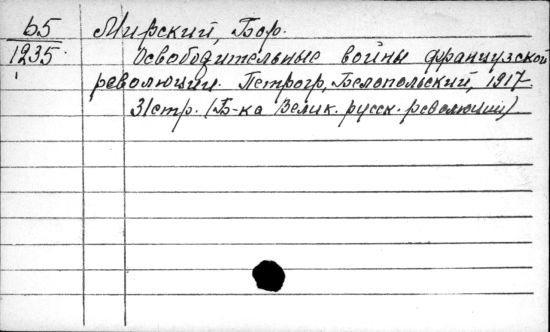 Б5
1235.
Мирский, Бор.
Освободительные войны французской
революции. Петрогр, Белопольский, 1917.
31стр. (Б-ка Велик. русск. революции)